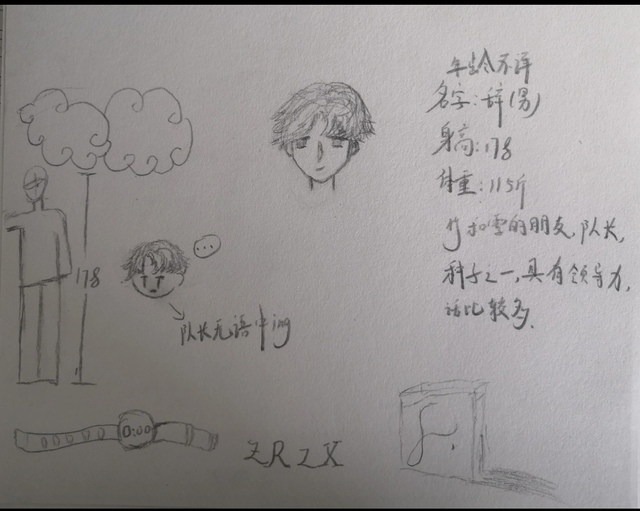 年龄不详
名字:辞(男)
身高:178
体重:115斤
和雪的朋友,队长,
科子之一,具有领导力,
话比较多.
178
...
队长无语中ing
0:00
ZRZX